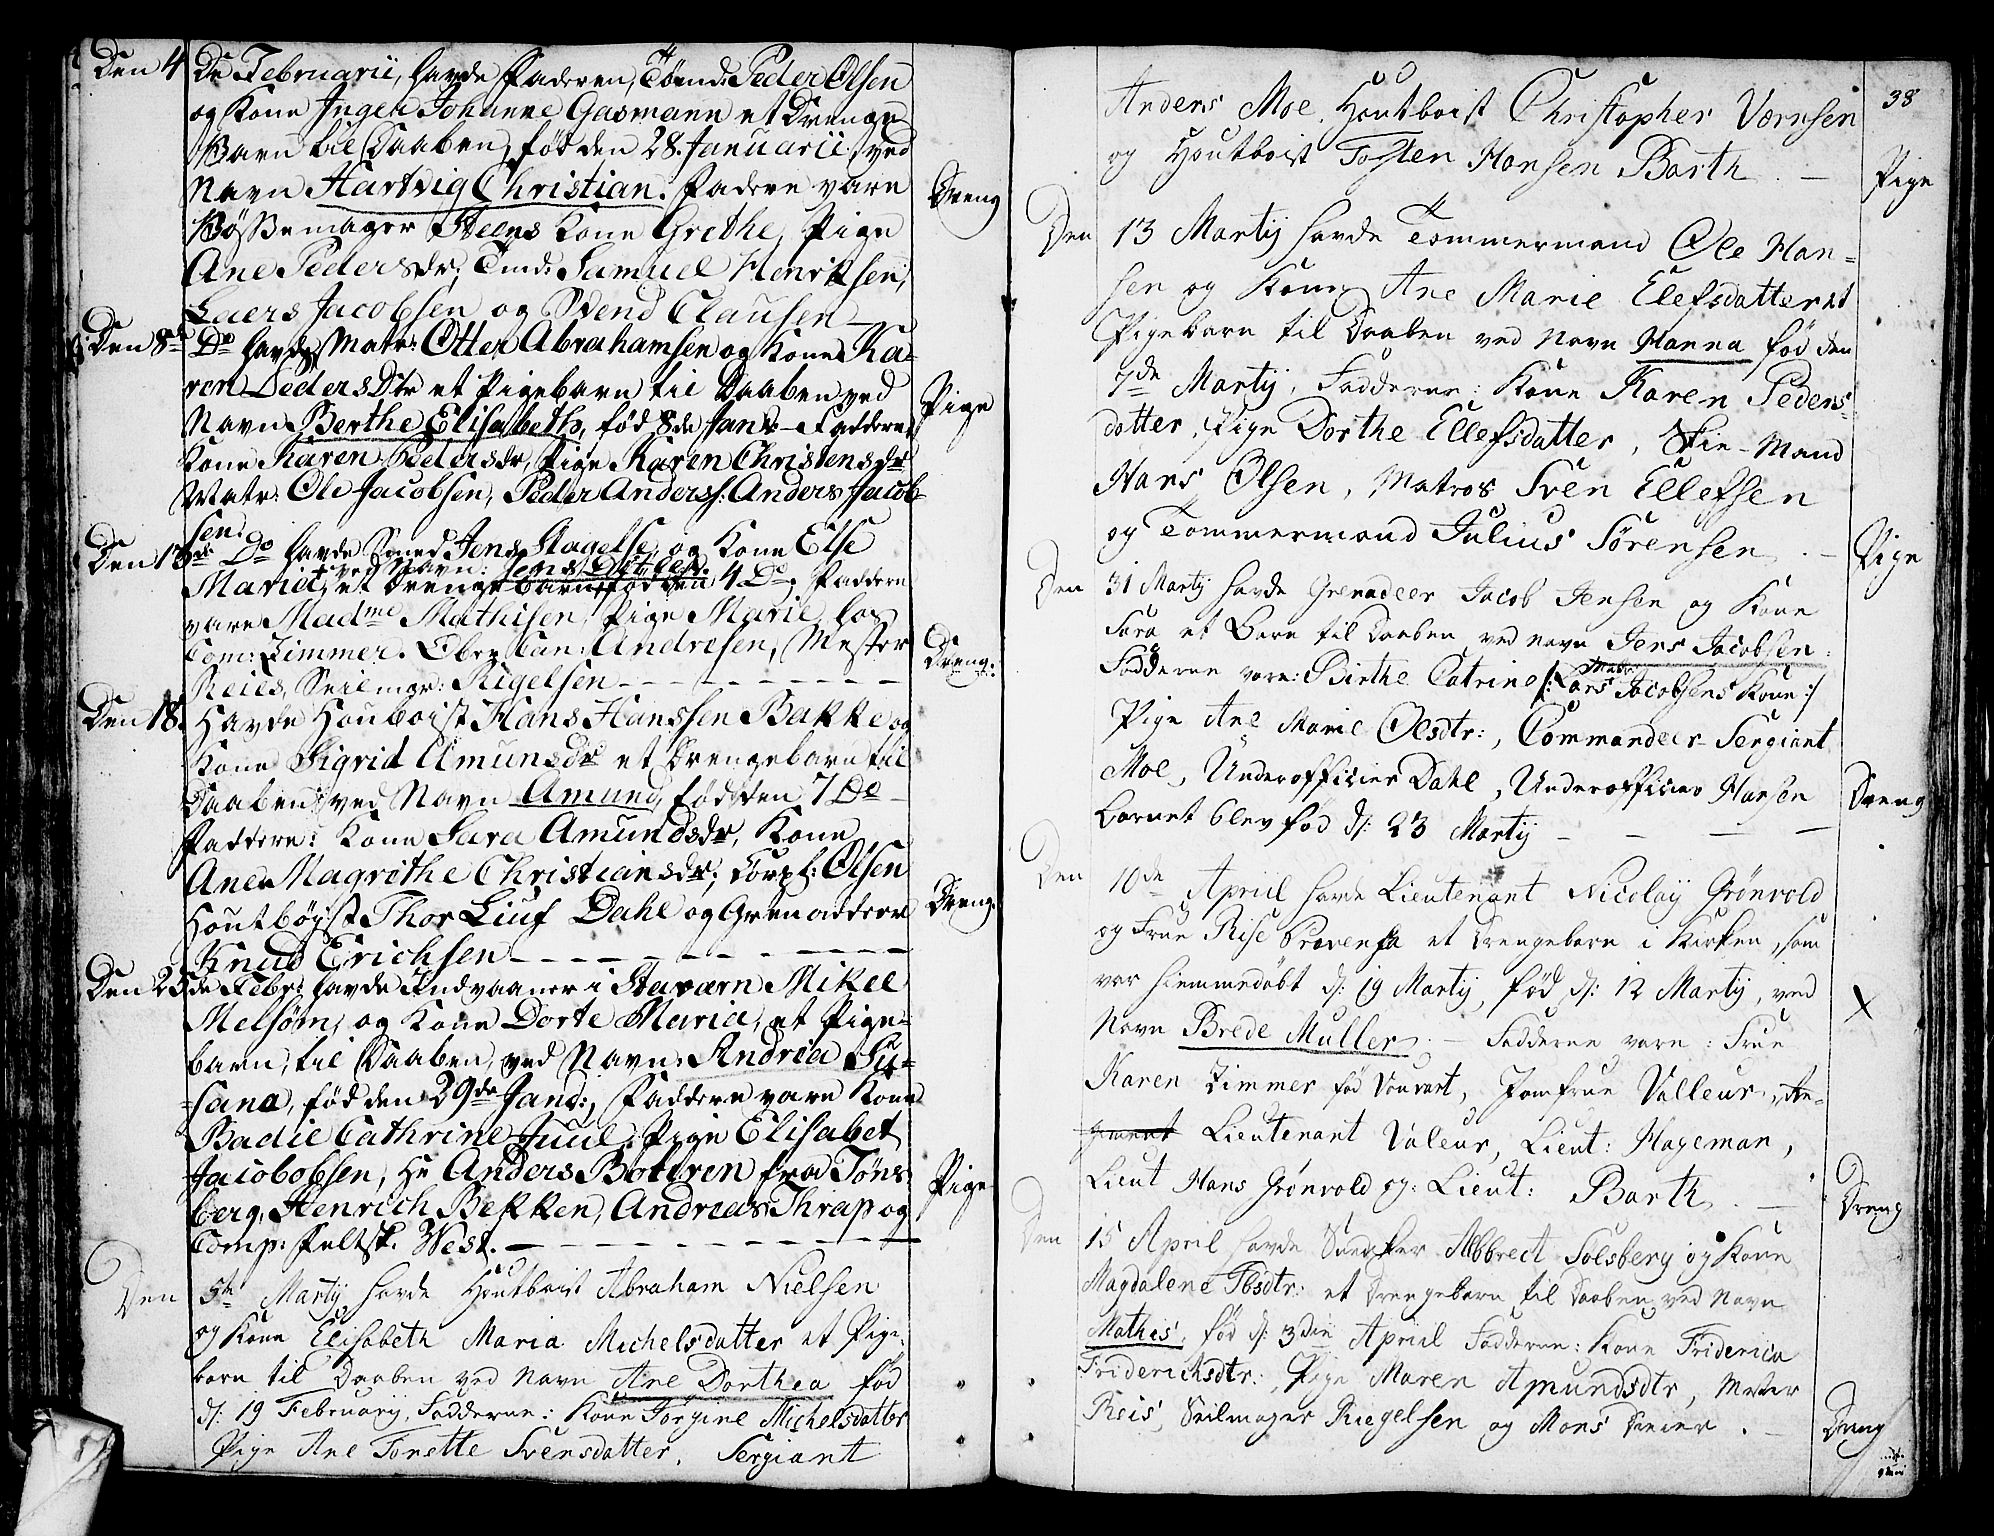 Den 4 De Februarii, havde Faderen, Tømd: Peder Olsen
og Kone Ingeb Johanne Gasmann et Drenge
Barn til Daaben, født den 28. Januarii, ved
Navn Hartvig Christian. Faddere vare
Bøssemager Steens Kone Grethe, Pige
Ane Pedersdr, Tmd: Samuel Henriksen,
Laers Jacobsen og Svend Clausen
Dreng
Den 8de Do havde Matr: Otter Abrahamsen og Kone Ka-
ren Peders Dtr et Pigebarn til Daaben ved
Navn Berthe Elisabeth, fød 8de Janr - Faddere,
Kone Karen Pedersdr, Pige Karen Christensdr
Matr: Ole Jacobsen, Peder Anderss: Anders Jacob-
sen.
Pige
Den 13de Do havde Smed Jens Slagelse, og Kone Else
Maria, et Drengebarn, ved Navn: Jens Ditlef. fød den 4 Do, Faddere
vare Madme Mathisen, Pige Marie hos
Com: Zimmer. Ober Can: Andresen, Mester
Reies, Seilmgr: Rigelsen
Dreng:
Den 18. Havde Houboist Hans Hanssen Bakke og
Kone Sigrid Amunsdr et Drengebarn til
Daaben ved Navn Amund, fød den 7 Do
Faddere: Kone Sara Amundsdr, Kone
Ane Magrethe Christiansdr, Corpl: Olsen
Houtbøist Thor Liuf Dahl og Grenadeer
Knud Erichsen
Dreng.
Den 25de Febr: havde Indvaaner i Staværn Mikel
Melsøm, og Kone Dorte Maria, et Pige-
barn, til Daaben, ved Navn, Andrea Su-
sana, fød den 29de Jand:, Faddere vare Kone
Badil Cathrine Juul, Pige Elisabet
Jacobobsen, Hr Anders Bottren fra Tøns-
berg, Henrich Bekken, Andreas Thrap og
Comp: Feltsk. West.
Pige
Den 5te Martij havde Houtboist Abraham Nielsen
og Kone Elisabeth Maria Michelsdatter et Pige
barn til Daaben ved Navn Ane Dorthea fød
d: 19 Februarij, Fadderne: Kone Jørgine Michelsdatter
Pige Ane Tonette Svensdatter, Sergiant
38
Anders Moe, Houtboist Christopher Værnsen
og Houtboist Tosten Hansen Barth
Pige
Den 13 Martij havde Tommermand Ole Han-
sen og Kone Ane Marie Elefsdatter et
Pigebarn til Daaben ved Navn Hanna fød den
7de Martij, Fadderne: Kone Karen Peders-
datter, Pige Dorthe Ellefsdatter, Fri-Mand
Hans Olsen, Matros Sven Ellefsen
og Tommermand Julius Sørensen
Pige
Den 31 Martij havde Grenadeer Jacob Jensen og Kone
Sara et Barn til Daaben ved navn Jens Jacobsen.
Fadderne vare: Birthe Catrine /: Matr: Lars Jacobsens Kone :/
Pige Ane Marie Olsdtr:, Commandeer-Sergiant
Moe, Underofficier Dahl, Underofficier Hansen
Barnet blev fød d: 23 Martij
Dreng
Den 10de Apriil havde Lieutenant Nicolaij Grønvold
og Frue Rise Pravensa et Drengebarn i Kirken, som
var hiemmedøbt d: 19 Martij, fød d: 12 Martij, ved
Navn Brede Muller. - Fadderne vare: Frue
X
Karen Zimmer fød Vouvert, Jomfrue Valleur,
Lieutenant Valeur, Lieut: Hageman,
Lieut Hans Grønvold og: Lieut: Barth
Dreng
Den 15 April havde Snedker Abbrect Solsberg og Kone
Magdalene Ibsdtr: et Drengebarn til Daaben ved Navn
Mathis, fød d: 3die Apriil Fadderne: Kone Friderica
Friderichsdtr:, Pige Maren Amundsdtr, Mester
Reis, Seilmager Riegelsen og Mons Dreier.
Dreng